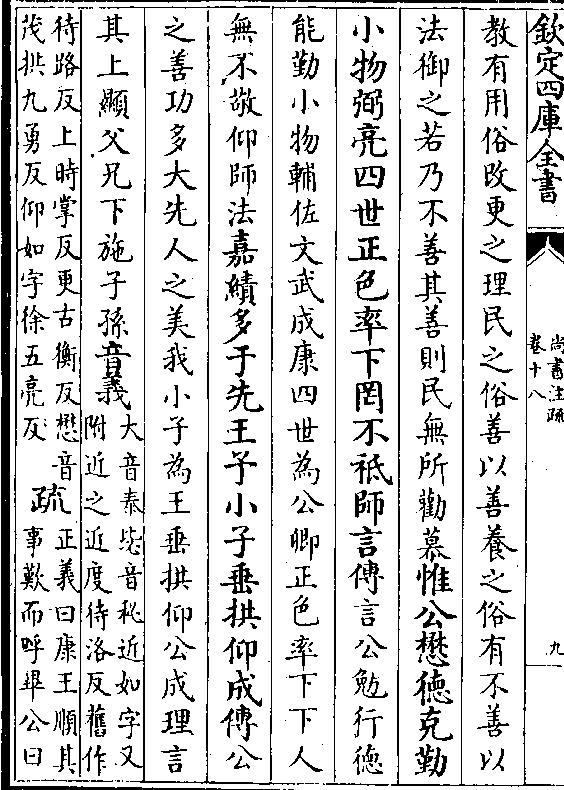 欽定四庫全書
尚書注疏
卷十八
九
教有用俗改更之理民之俗善以善養之俗有不善以
法御之若乃不善其善則民無所勸慕惟公懋德克勤
小物弼亮四世正色率下罔不祗師言傳言公勉行德
能勤小物輔佐文武成康四世為公卿正色率下下人
無不敬仰師法嘉績多于先王予小子垂拱仰成傳公
之善功多大先人之美我小子為王垂拱仰公成理言
其上顯父兄下施子孫音義
大音泰毖音秘近如字又
附近之近度待洛反舊作
待路反上時掌反更古衡反懋音
茂拱九勇反仰如字徐五亮反
疏
正義曰康王順其
事歎而呼畢公曰